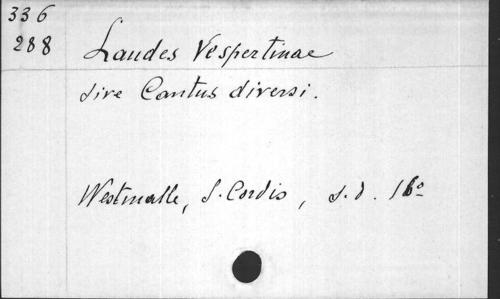 336
288
Laudes Vespertinae
sive Cantus diversi.
Westmalle, S. Cordis, s.d. 16º